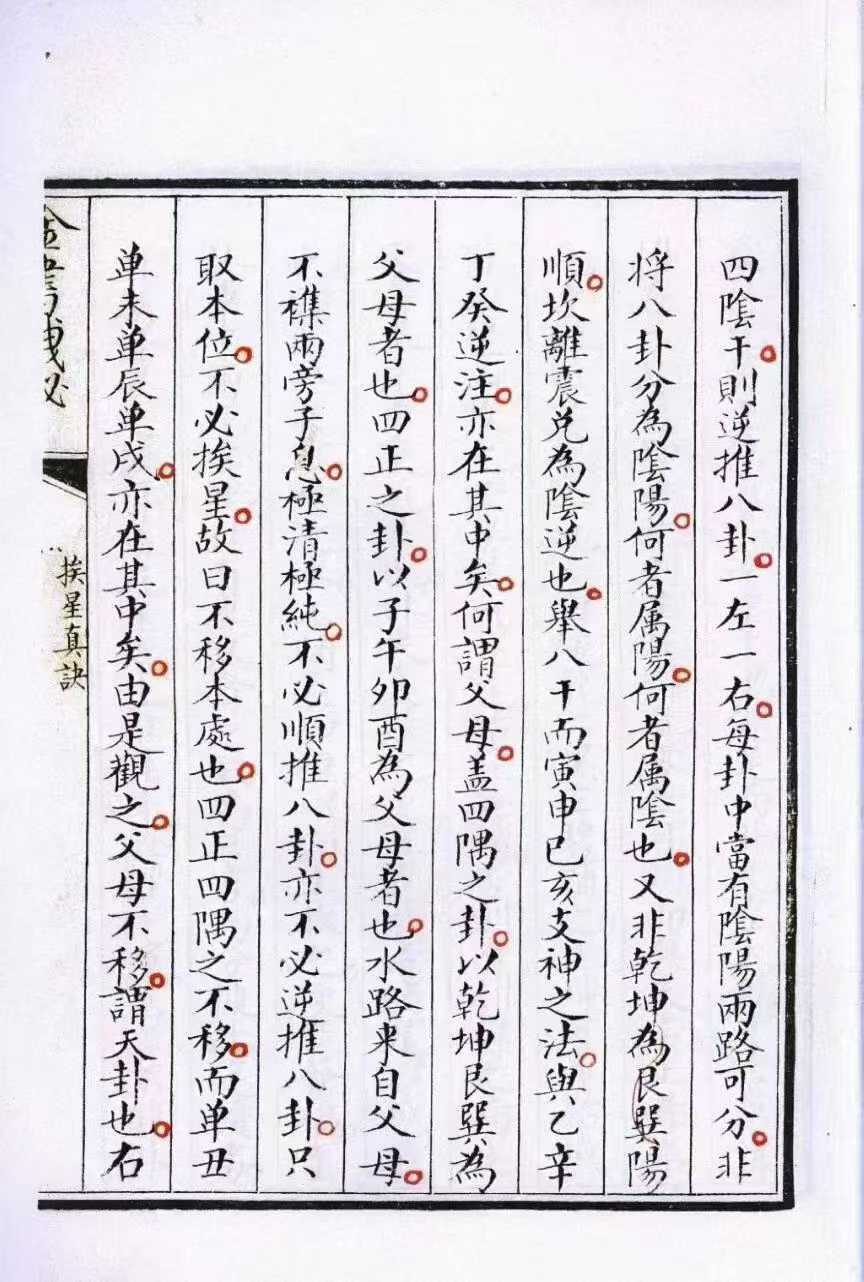 四陰干則逆推八卦一左一右每卦中當有陰陽兩路可分非
將八卦分為陰陽何者属陽何者属陰也又非乾坤為艮巽陽
順坎離震兌為陰逆也舉八干而寅申巳亥支神之法與乙辛
丁癸逆注亦在其中矣何謂父母盖四隅之卦以乾坤艮巽為
父母者也四正之卦以子午卯酉為父母者也水路来自父母
不襍兩旁子息極清極純不必順推八卦亦不必逆推八卦只
取本位不必挨星故曰不移本處也四正四隅之不移而单丑
单未单辰单戌亦在其中矣由是觀之父母不移謂天卦也右
挨星真訣